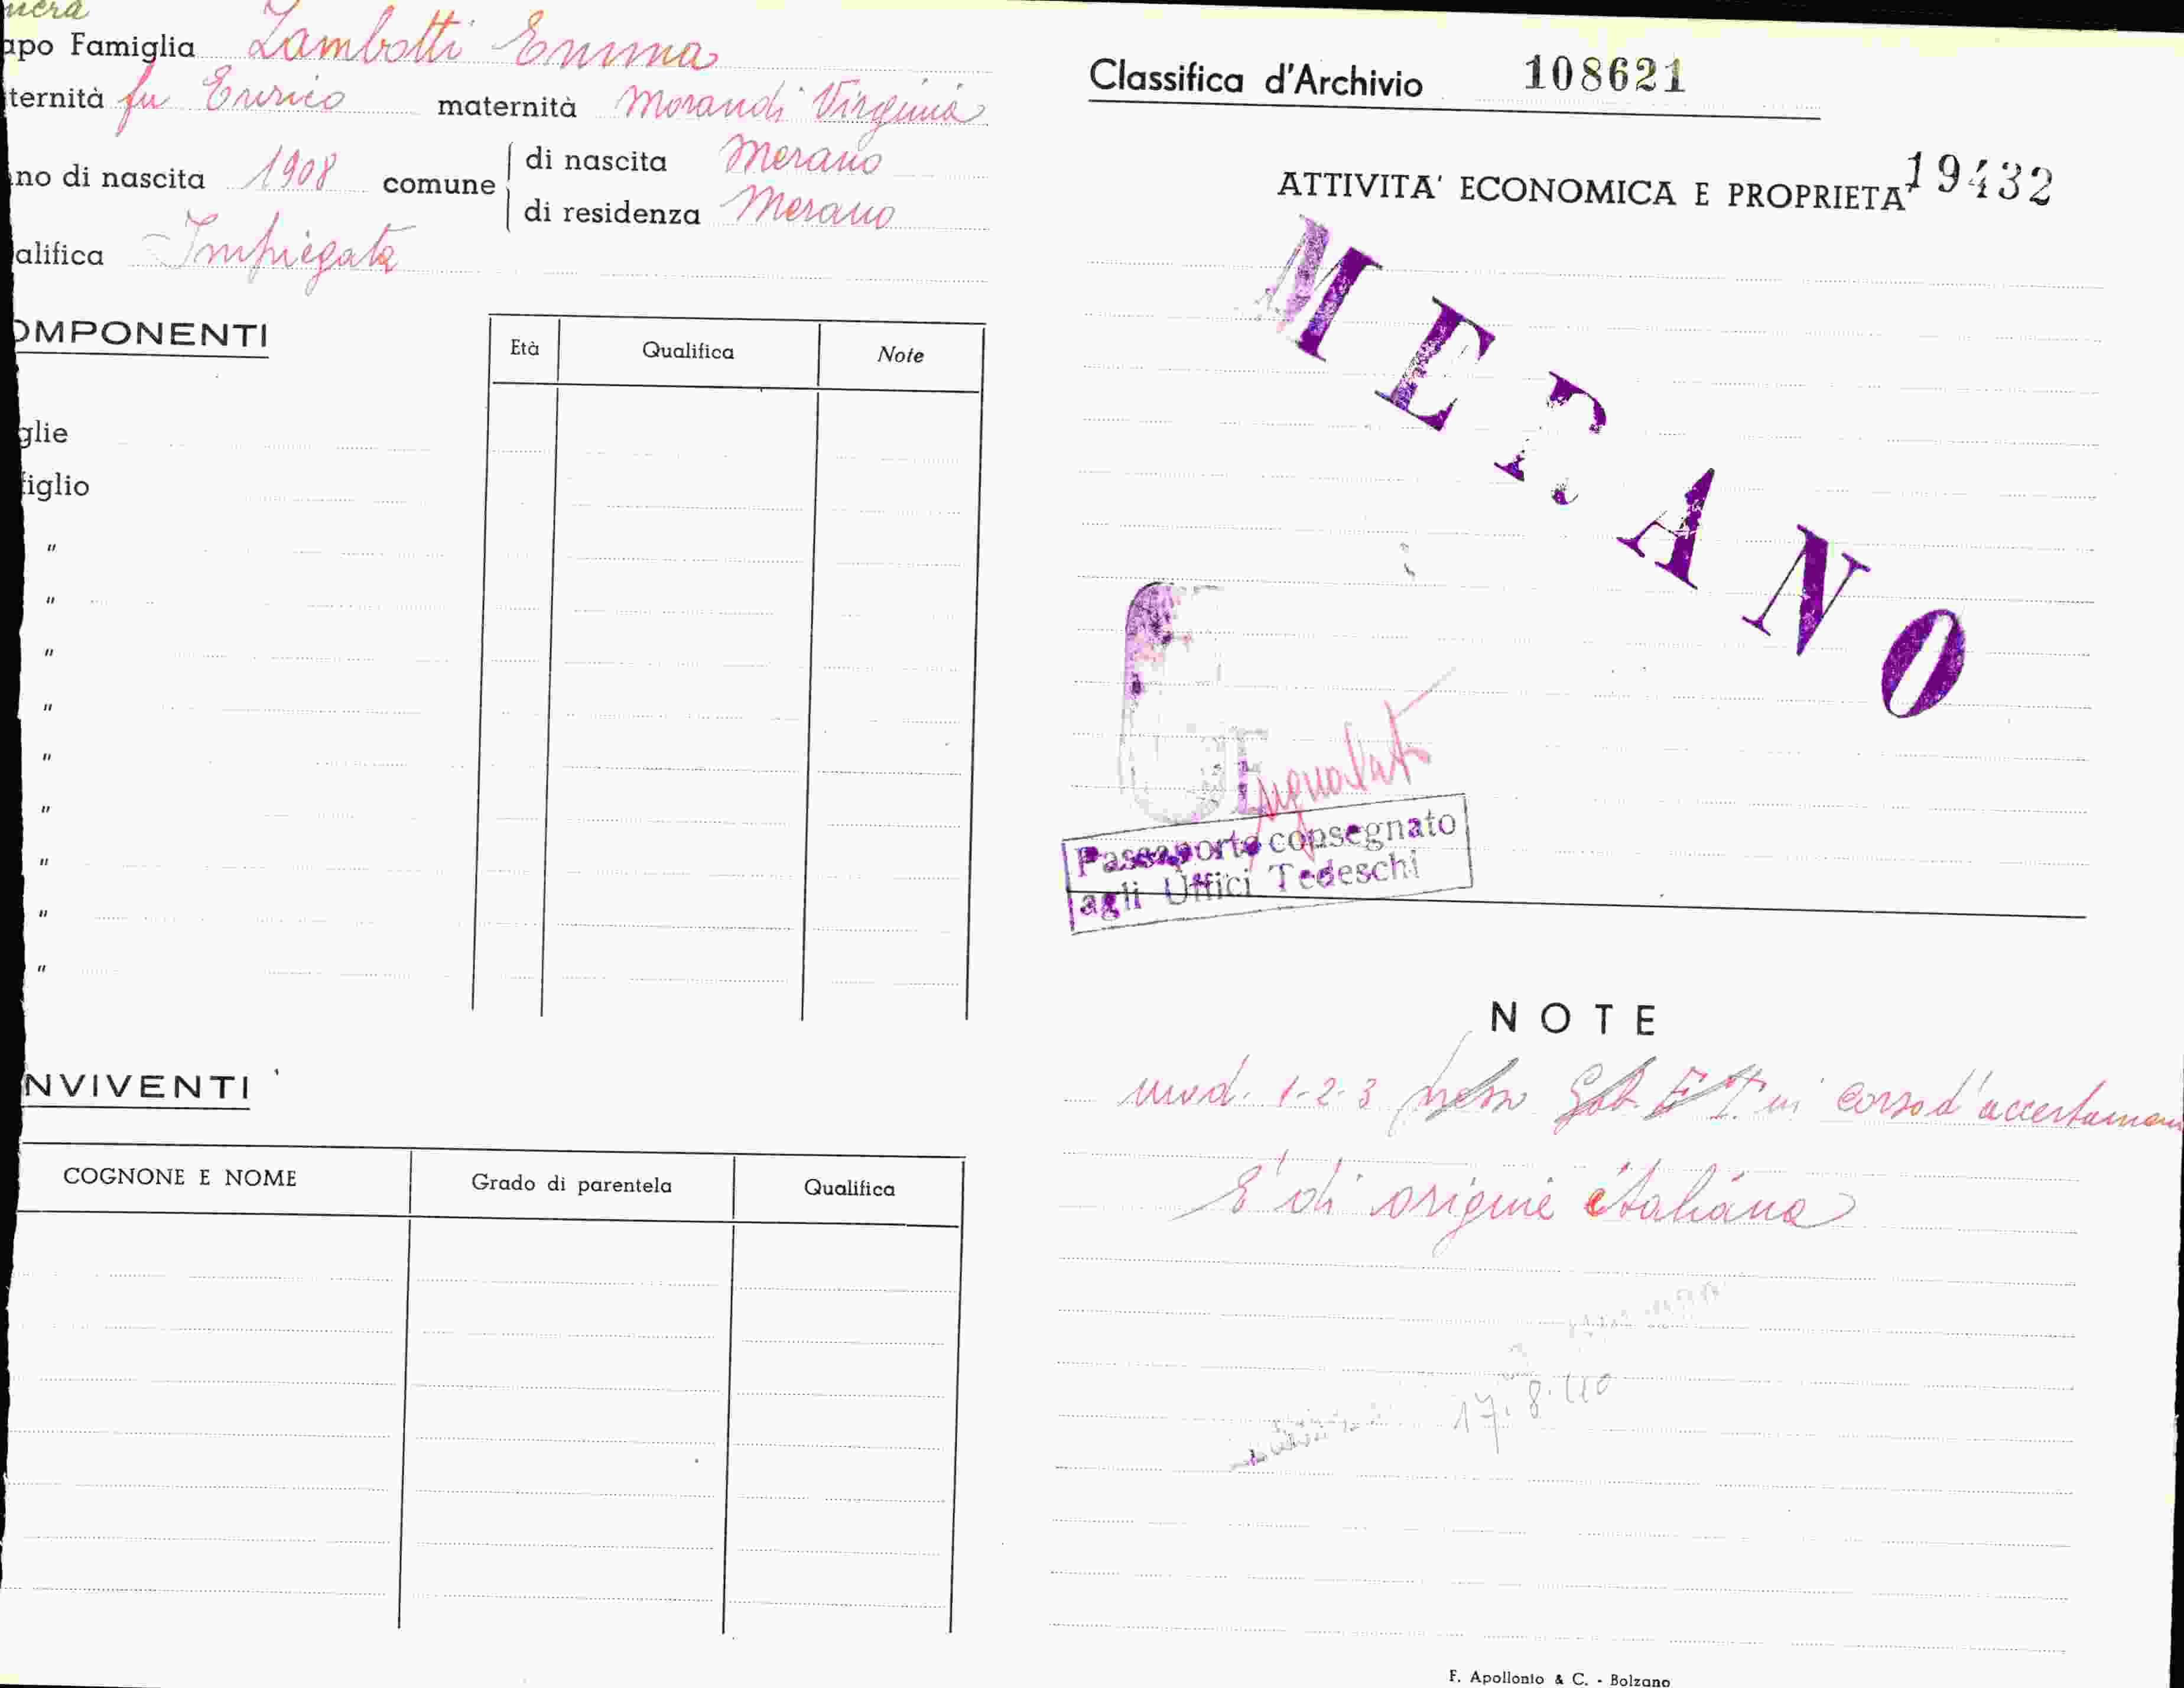 nera
apo Famiglia Zambotti Emma
ternità fu Enrico maternità Morandi Virginia
no di nascita 1908 comune di nascita Merano
di residenza Merano
alifica Impiegata
OMPONENTI
Età Qualifica Note
glie
figlio
"
"
"
"
"
"
"
"
"
NVIVENTI
COGNONE E NOME Grado di parentela Qualifica
Classifica d'Archivio 108621
ATTIVITA' ECONOMICA E PROPRIETA' 19432
MERANO
Passaporto consegnato
agli Uffici Tedeschi
NOTE
mod. 1-2-3 presso Gab. E.T. in corso d'accertamen
E' di origine italiana
17.8.40
F. Apollonio & C. - Bolzano